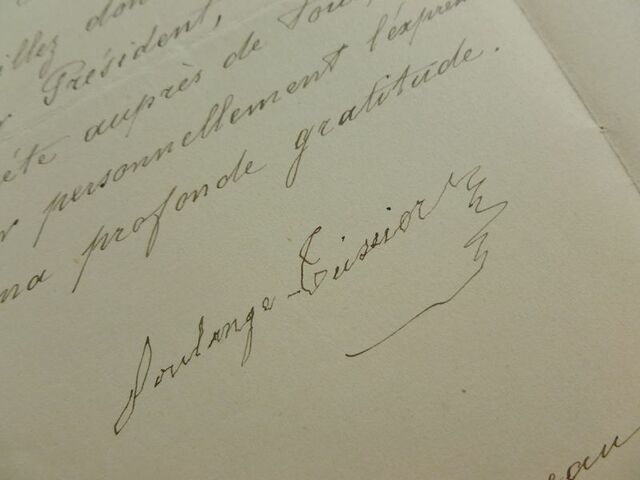 illez don
Président,
ète auprès de
personnellement l'expres
ma profonde gratitude.
Soulange-Teissier
eau